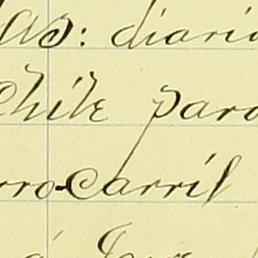 las: diario
Chile para
rro-carril
á